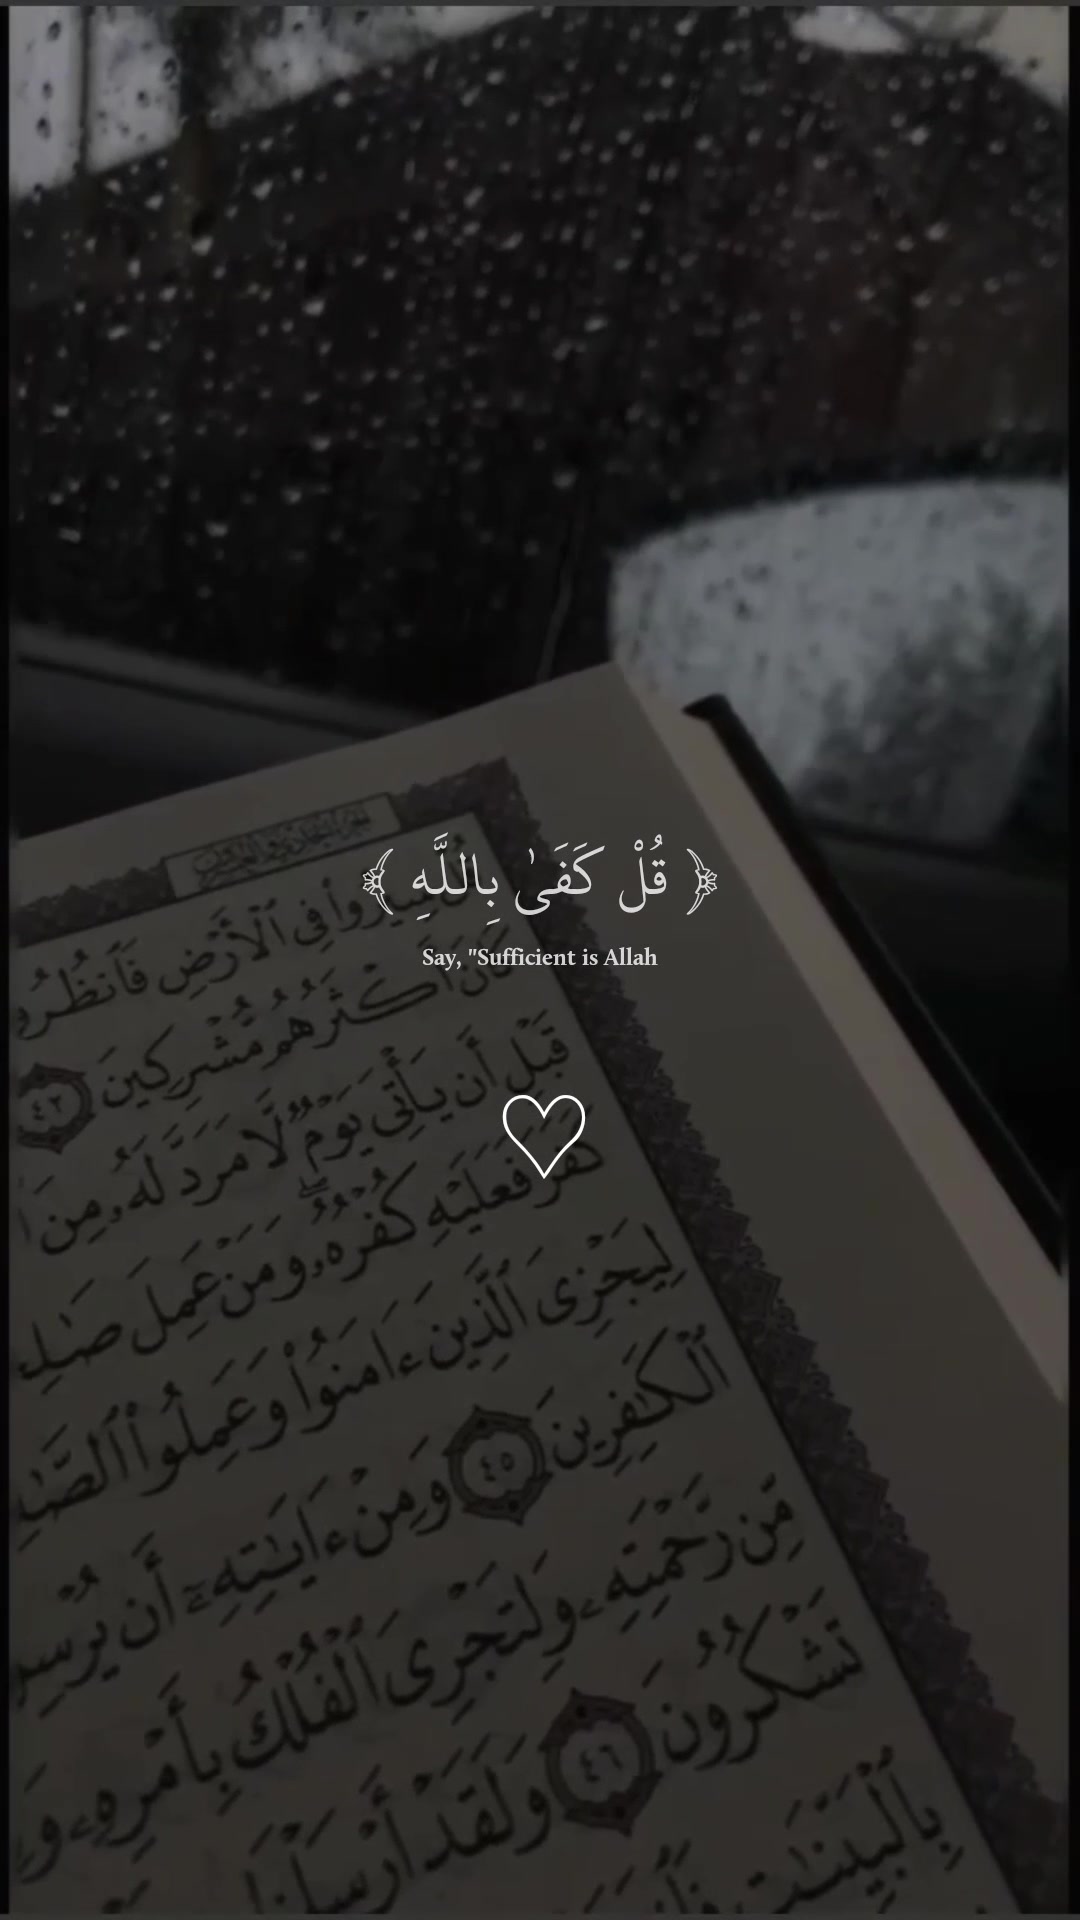 ﴿ قُلْ كَفَىٰ بِاللَّهِ ﴾
Say, "Sufficient is Allah
قُلْ سِيرُوا۟ فِى ٱلْأَرْضِ فَٱنظُرُوا۟
كَانَ أَكْثَرُهُم مُّشْرِكِينَ ٤٢
قَبْلِ أَن يَأْتِىَ يَوْمٌ لَّا مَرَدَّ لَهُۥ مِنَ
كَفَرَ فَعَلَيْهِ كُفْرُهُۥ وَمَنْ عَمِلَ
لِيَجْزِىَ ٱلَّذِينَ ءَامَنُوا۟ وَعَمِلُوا۟
ٱلْكَٰفِرِينَ ٤٥ وَمِنْ ءَايَٰتِهِۦٓ أَن
مِّن رَّحْمَتِهِۦ وَلِتَجْرِىَ ٱلْفُلْكُ بِأَمْرِهِۦ
تَشْكُرُونَ ٤٦ وَلَقَدْ أَرْسَلْنَا
بِٱلْبَيِّنَٰتِ